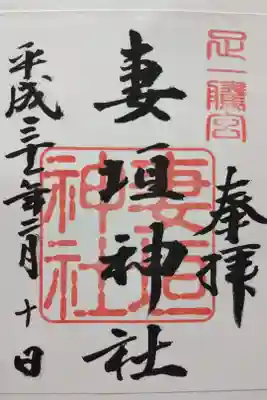 足一騰宮
奉拝
妻垣神社
妻垣
神社
平成三十一年二月十日